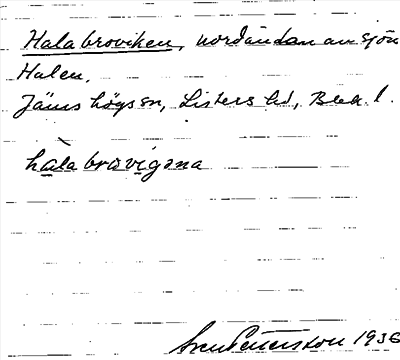 Halabroviken, nordändan av sjön
Halen.
Jämshögs sn, Listers hd, Blek. l.
hàla brovigana
Sven Pettersson 1936